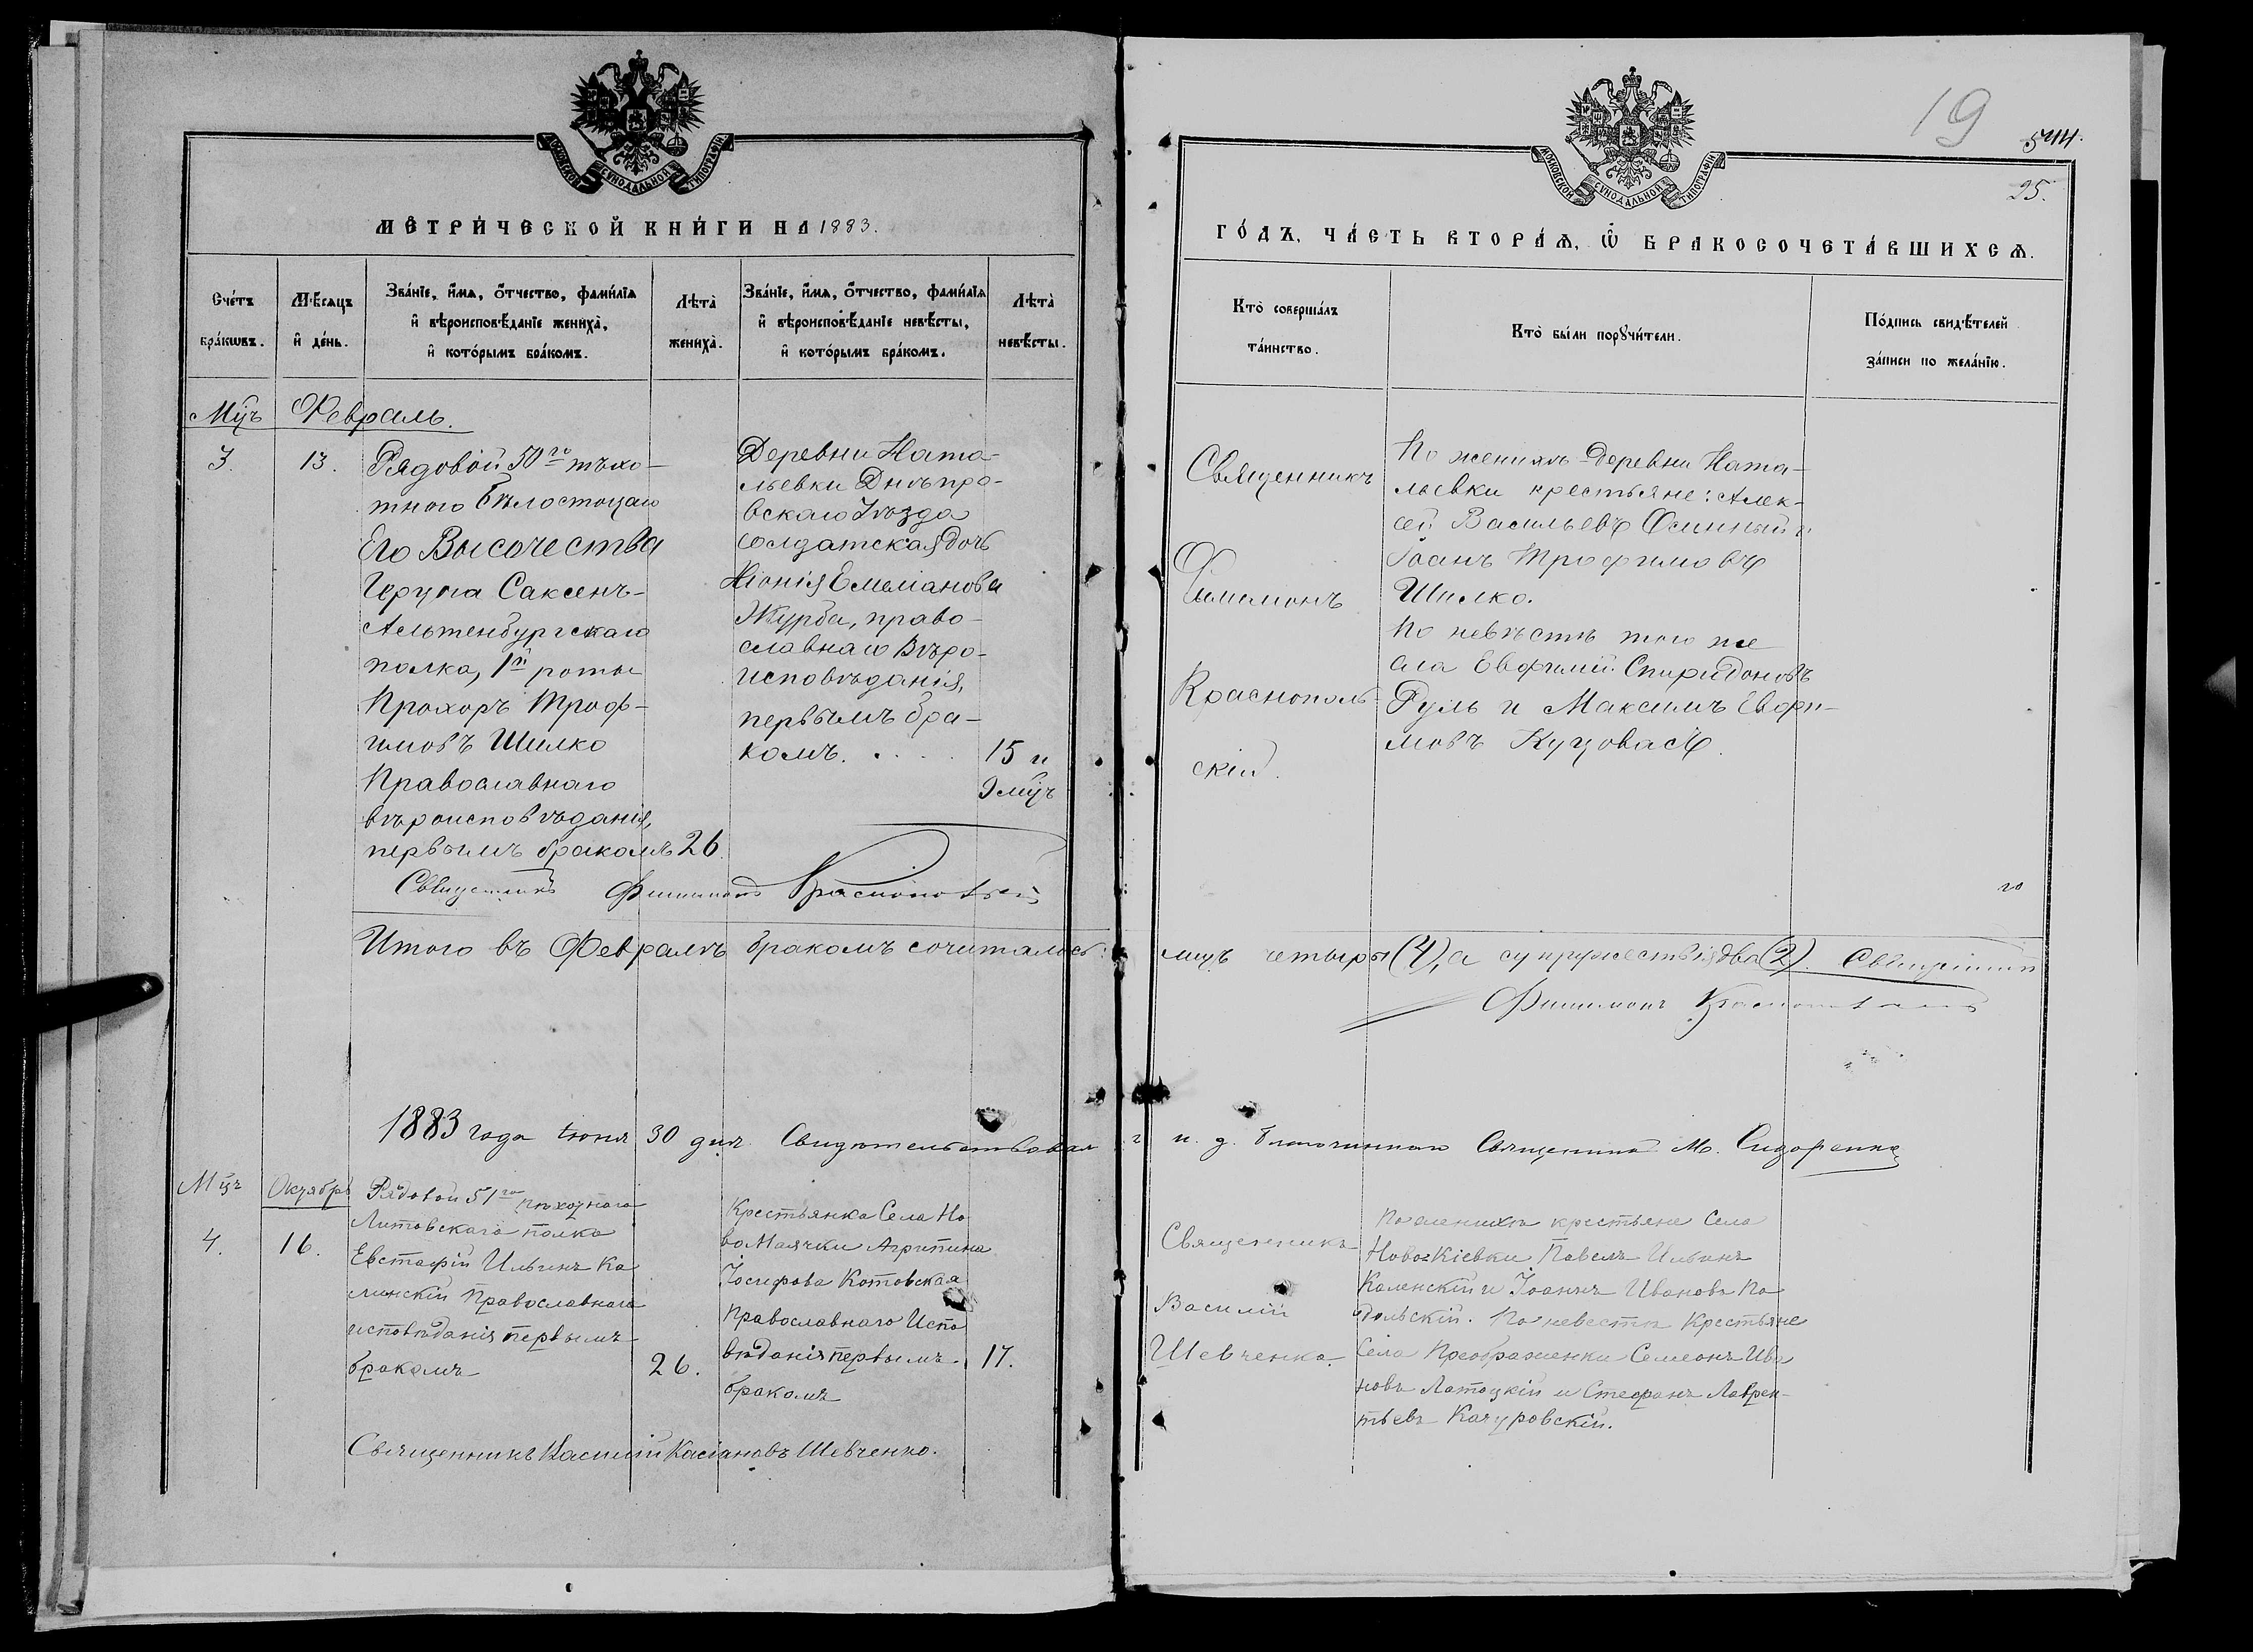 МОСКОВСКОЙ СУНОДАЛЬНОЙ ТИПОГРАФІИ
МЕТРИ́ЧЕСКОЙ КНИ́ГИ НА 1883.
Сче́тъ бра́кωвъ.
Мѣ́сяцъ и҆ де́нь.
Зва́нїе, и҆́мѧ, ѻ҆́тчество, фами́лїѧ
и҆ вѣроисповѣ́данїе жениха̀,
и҆ кото́рымъ бра́комъ.
Лѣта̀ жениха̀.
Зва́нїе, и҆́мѧ, ѻ҆́тчество, фами́лїѧ
и҆ вѣроисповѣ́данїе невѣ́сты,
и҆ кото́рымъ бра́комъ.
Лѣта̀ невѣ́сты.
Мцъ Февраль.
3. 13.
Рядовой 50го пѣхо-
тнаго Бѣлостоцкаго
Его Высочества
Герцога Саксенъ-
Альтенбургскаго
полка, 1й роты
Прохоръ Троф-
имовъ Шилко
Православнаго
вѣроисповѣданія,
первымъ бракомъ 26.
Деревни Ната-
льевки Днѣпро-
вскаго Уѣзда
солдатская дочь
Хіонія Емеліанова
Журба, право-
славнаго Вѣро-
исповѣданія,
первымъ бра-
комъ. . . . . 15 и
9 мцъ
Священникъ Филимонъ Краснопольскій
Итого въ Февралѣ бракомъ сочиталось:
1883 года Іюня 30 дня Свидѣтельствовал
Мцъ Октябрь
4. 16.
Рядовой 51го пѣхотнаго
Литовскаго полка
Евстафій Ильинъ Ка
линскій Православнаго
исповѣданія первымъ
бракомъ 26.
Крестьянка Села Но
воМаячки Агрипина
Іосифова Котовская
Православнаго Испо
вѣданія первымъ 17.
бракомъ
Священникъ Василій Касіановъ Шевченко.
19
544.
25.
МОСКОВСКОЙ СУНОДАЛЬНОЙ ТИПОГРАФІИ
ГО́ДЪ, ЧА́СТЬ ВТОРА́Ѧ, Ѽ БРАКОСОЧЕТА́ВШИХСѦ.
Кто̀ соверша́лъ
та́инство.
Кто̀ бы́ли порꙋчи́тели.
По́дпись свидѣ́телей
за́писи по жела́нїю.
Священникъ
Филимонъ
Краснополь-
скій.
По женихѣ Деревни Ната-
льевки крестьяне: Алек-
сей Васильевъ Осинный и
Іоанъ Трофимовъ
Шилко.
По невѣстѣ того же
села Евфимій Спиридоновъ
Руль и Максимъ Евфи-
мовъ Куцовасъ.
го
лицъ четыре (4), а супружествія два (2). Священникъ
Филимонъ Краснопольскій
и. д. благочиннаго Священникъ М. Сидоренко
Священникъ
Василій
Шевченко.
По женихѣ крестьяне Села
Ново=Кіевки Павелъ Ильинъ
Каленскій и Іоаннъ Ивановъ По
дольскій. По невестѣ Крестьяне
Села Преображенки Семеонъ Ива
новъ Латоцкій и Стефанъ Лаврен-
тьевъ Качуровскій.